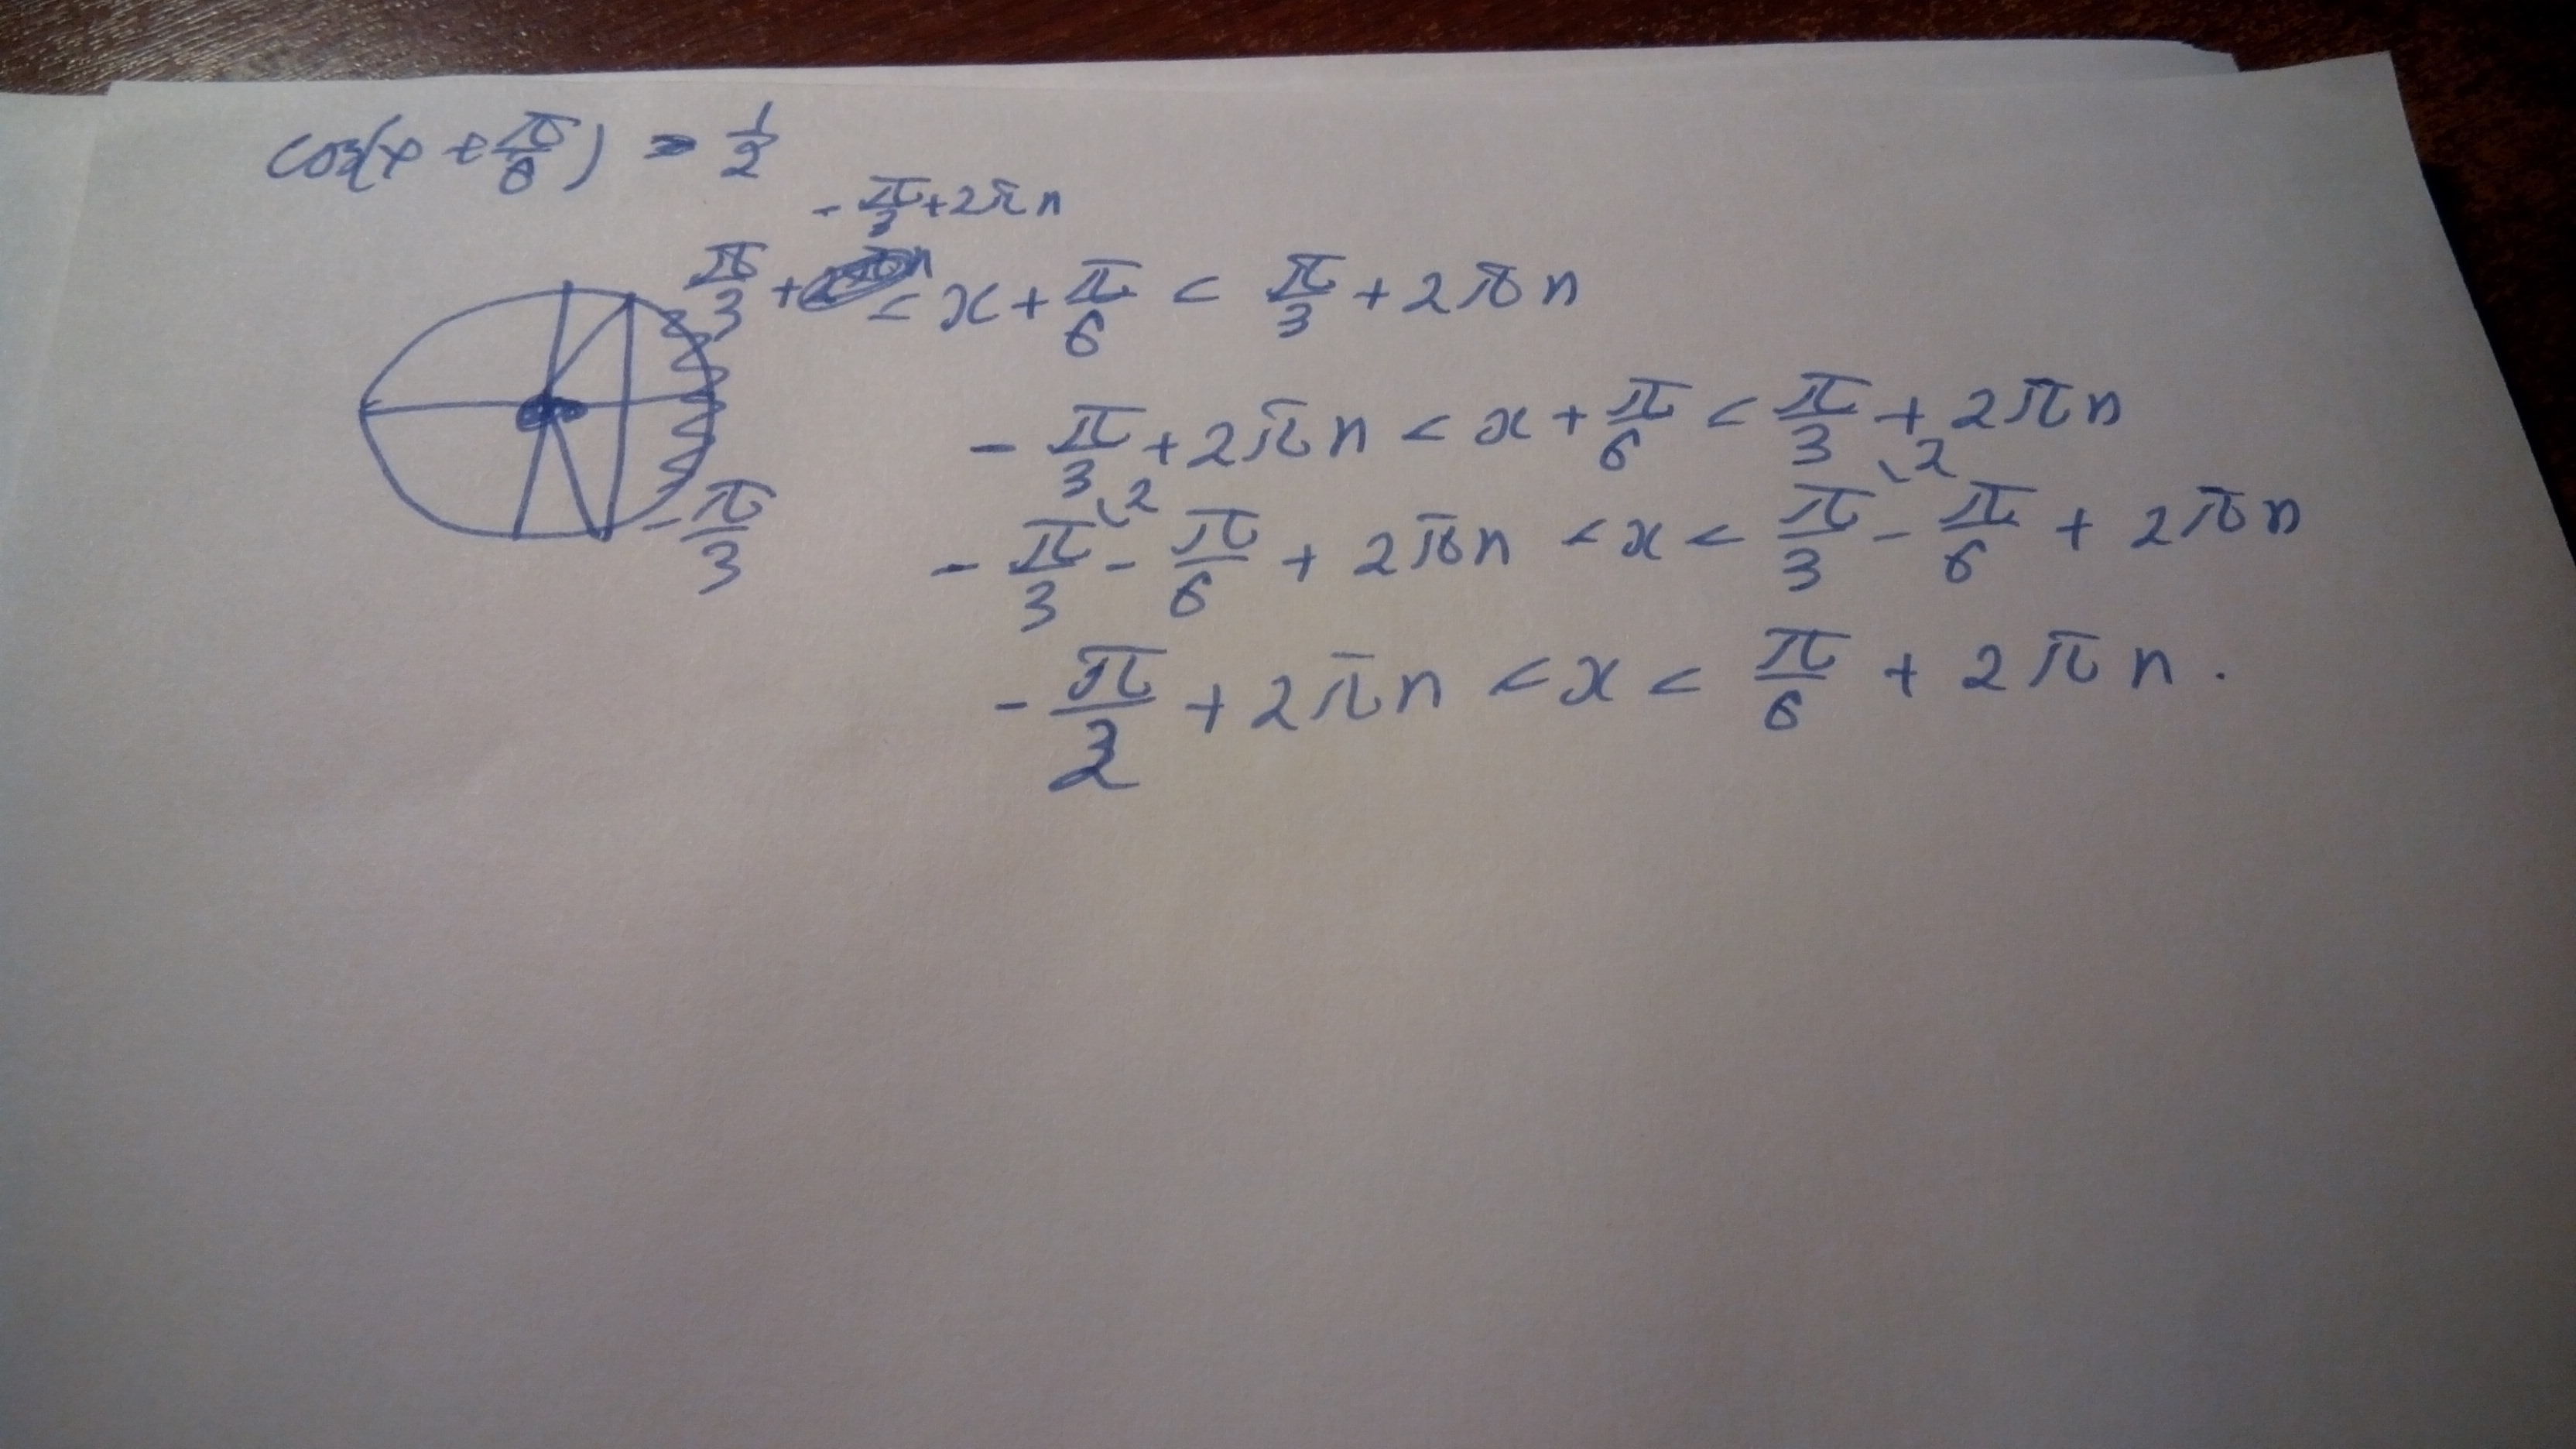 cos(x + π/6) > 1/2
- π/3 + 2πn
π/3 + < x + π/6 < π/3 + 2πn
- π/3 + 2πn < x + π/6 < π/3 + 2πn
- π/3 \2 - π/6 + 2πn < x < π/3 \2 - π/6 + 2πn
- π/3
- π/2 + 2πn < x < π/6 + 2πn .